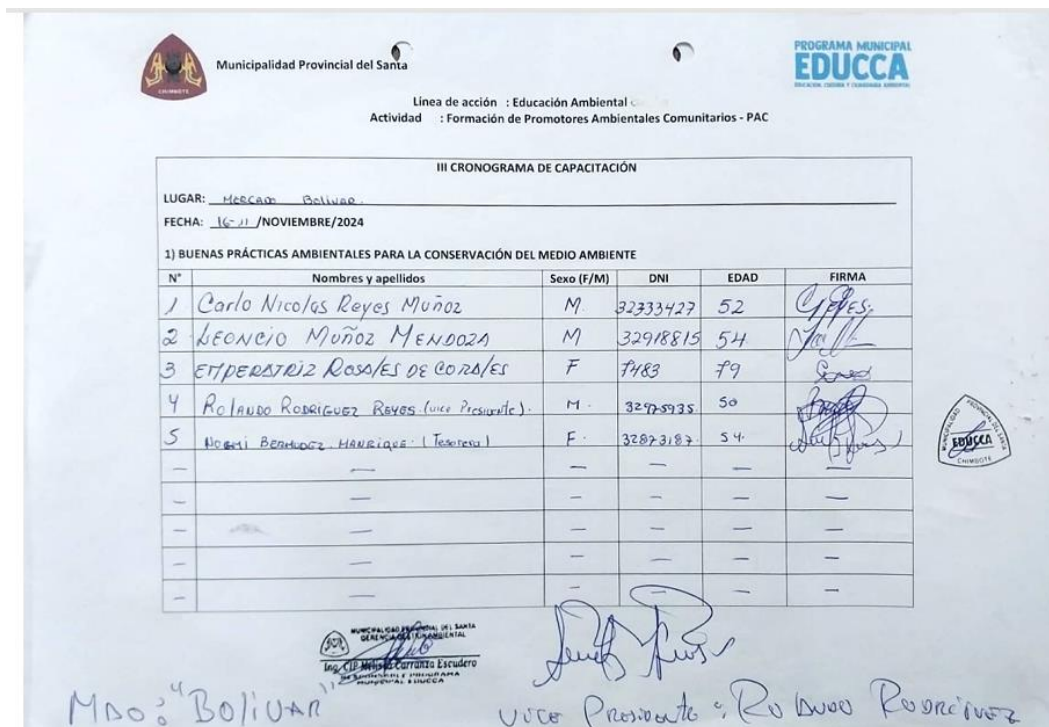 CHIMBOTE
Municipalidad Provincial del Santa
PROGRAMA MUNICIPAL
EDUCCA
EDUCACIÓN, CULTURA Y CIUDADANÍA AMBIENTAL
Línea de acción : Educación Ambiental
Actividad : Formación de Promotores Ambientales Comunitarios - PAC
III CRONOGRAMA DE CAPACITACIÓN
LUGAR: MERCADO BOLIVAR.
FECHA: 16-11 /NOVIEMBRE/2024
1) BUENAS PRÁCTICAS AMBIENTALES PARA LA CONSERVACIÓN DEL MEDIO AMBIENTE
N° Nombres y apellidos Sexo (F/M) DNI EDAD FIRMA
1 Carlo Nicolas Reyes Muñoz M. 32333427 52
2 LEONCIO MUÑOZ MENDOZA M 32918815 54
3 EMPERATRIZ ROSALES DE CORALES F 7483 79
4 ROLANDO RODRIGUEZ REYES (vice Presidente). M. 32975935 50
5 NOEMI BERMUDEZ MANRIQUE (Tesorera) F. 32873187. 54.
— — — — — —
— — — — — —
— — — — — —
— — — — — —
— — — — — —
MUNICIPALIDAD PROVINCIAL DEL SANTA
EDUCCA
CHIMBOTE
MUNICIPALIDAD PROVINCIAL DEL SANTA
GERENCIA GESTIÓN AMBIENTAL
Ing. CIP Melissa Carranza Escudero
RESPONSABLE PROGRAMA
MUNICIPAL EDUCCA
MDO: "BOLIVAR" VICE Presidente: ROLANDO RODRÍGUEZ